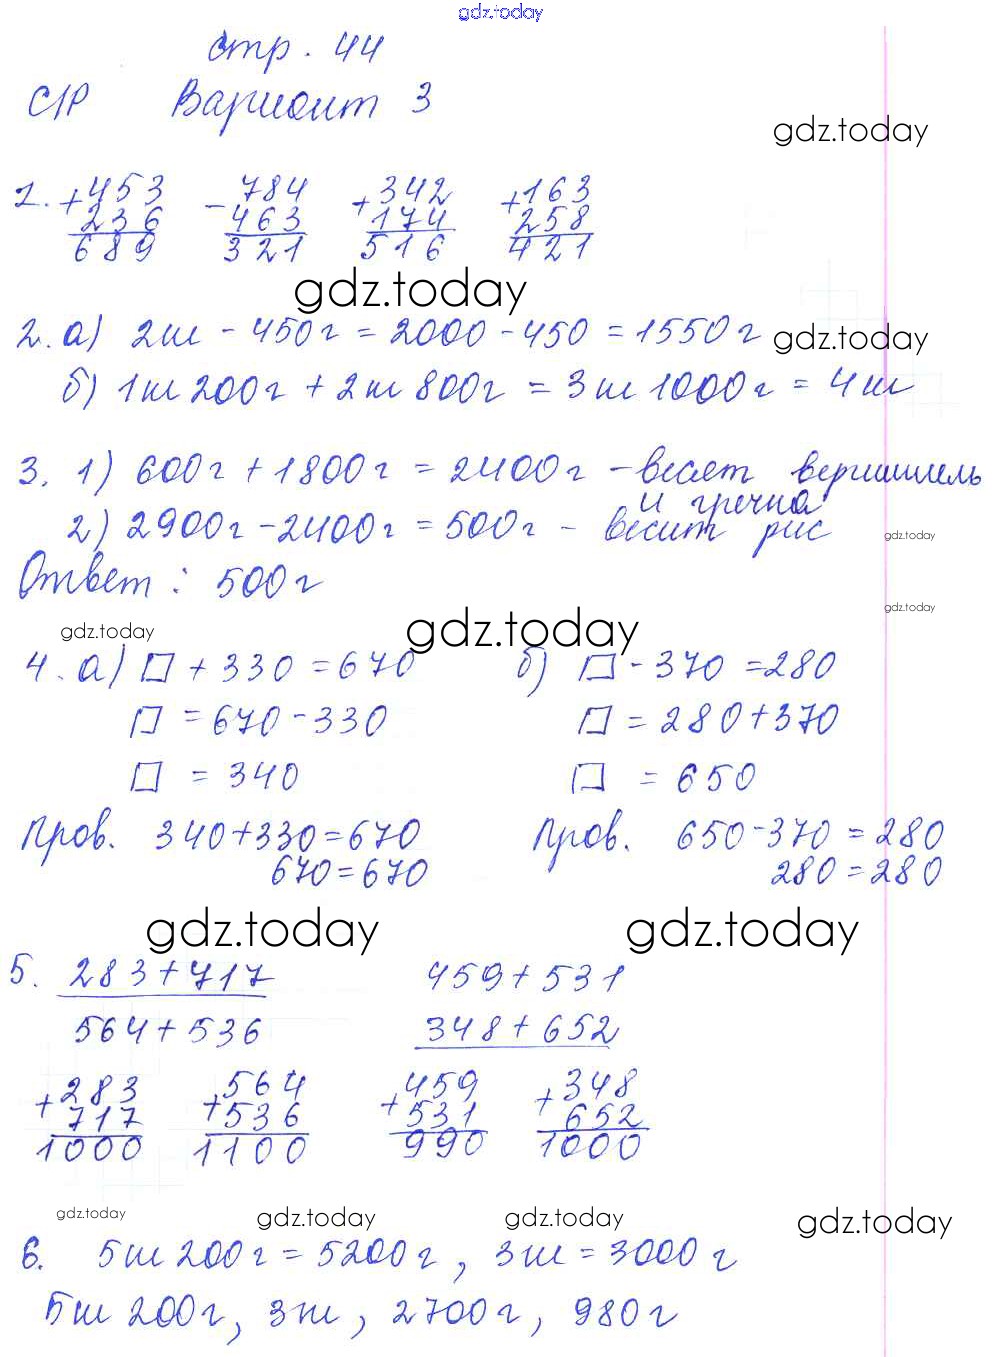 gdz.today
стр. 44
С/Р Вариант 3
gdz.today
1. +453 -784 +342 +163
236 463 174 258
689 321 516 421
gdz.today
2. а) 2кг - 450г = 2000 - 450 = 1550г
gdz.today
б) 1кг 200г + 2кг 800г = 3кг 1000г = 4кг
3. 1) 600г + 1800г = 2400г - весят вермишель
и гречка
2) 2900г - 2400г = 500г - весит рис
gdz.today
Ответ: 500г
gdz.today
gdz.today gdz.today
4. а) □ + 330 = 670 б) □ - 370 = 280
□ = 670 - 330 □ = 280 + 370
□ = 340 □ = 650
Пров. 340+330=670 Пров. 650-370=280
670=670 280=280
gdz.today gdz.today
5. 283+717 459+531
564+536 348+652
+283 +564 +459 +348
717 536 531 652
1000 1100 990 1000
gdz.today gdz.today gdz.today gdz.today
6. 5кг 200г = 5200г, 3кг = 3000г
5кг 200г, 3кг, 2700г, 980г